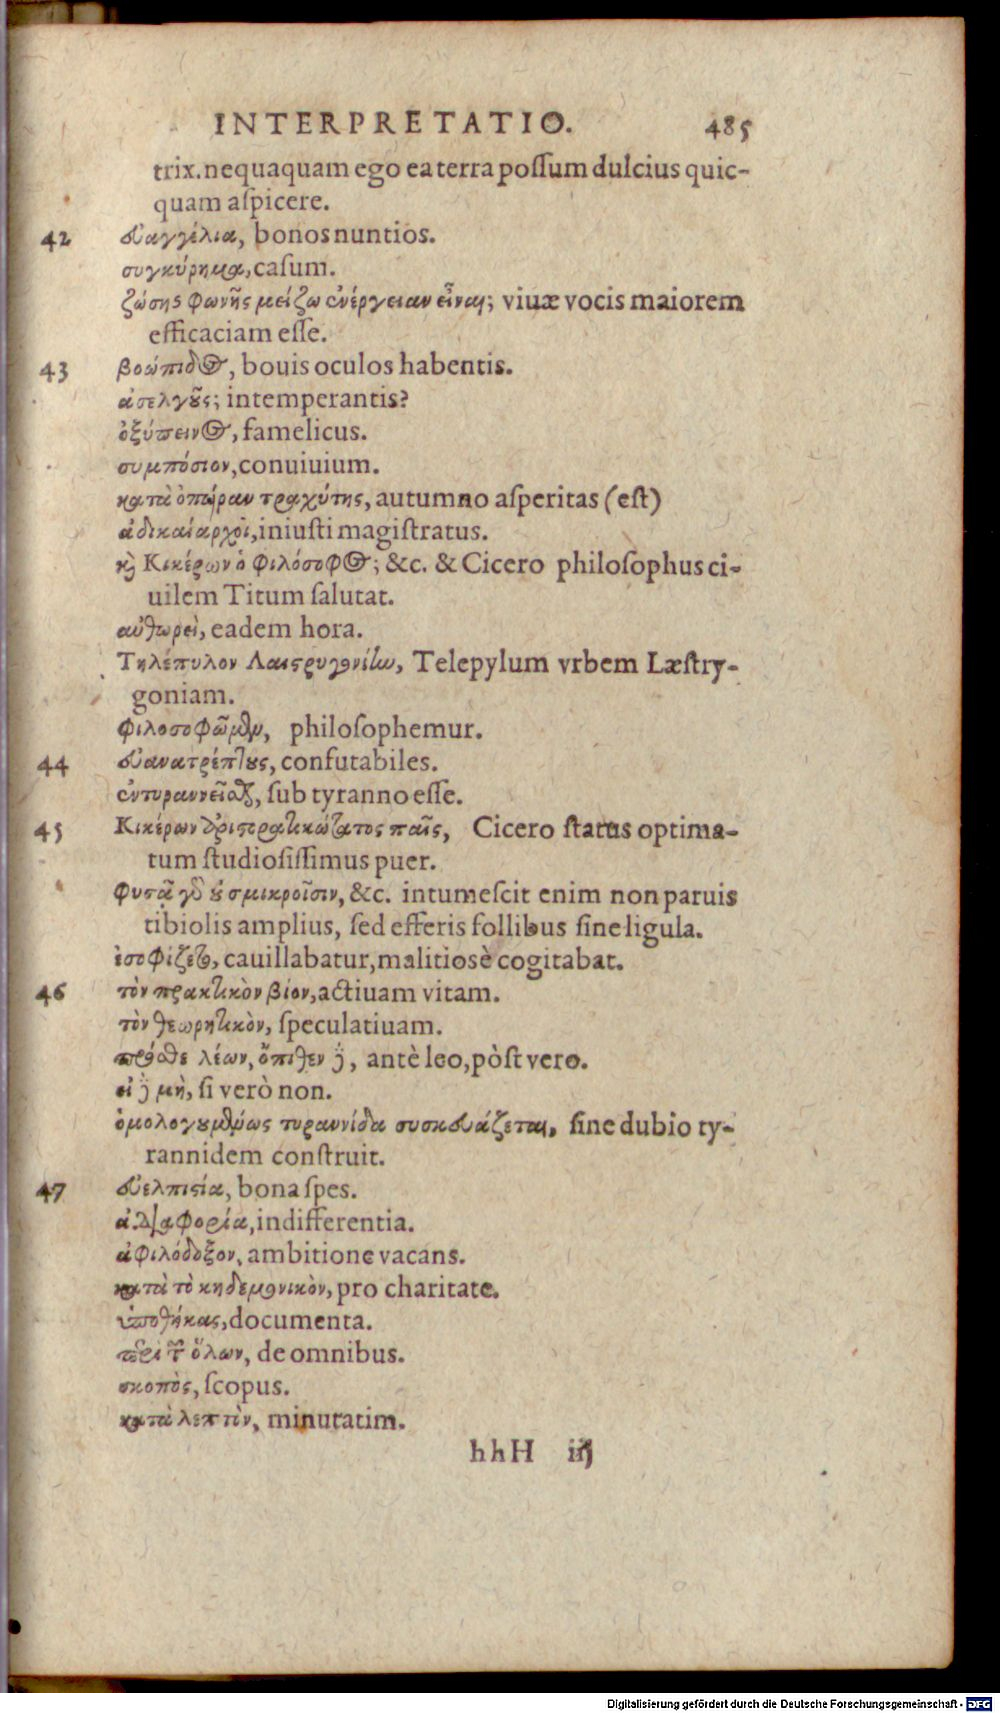 INTERPRETATIO. 485
trix. nequaquam ego ea terra possum dulcius quic-
quam aspicere.
42 εὐαγγέλια, bonos nuntios.
συγκύρημα, casum.
ζώσης φωνῆς μείζω ἐνέργειαν εἶναι; viuæ vocis maiorem
efficaciam esse.
43 βοώπιδος, bouis oculos habentis.
ἀσελγοῦς; intemperantis?
ὀξύπεινος, famelicus.
συμπόσιον, conuiuium.
κατὰ ὀπώραν τραχύτης, autumno asperitas (est)
ἀδικαίαρχοι, iniusti magistratus.
καὶ Κικέρων ὁ φιλόσοφος; &c. & Cicero philosophus ci-
uilem Titum salutat.
αὐθωρεὶ, eadem hora.
Τηλέπυλον Λαιστρυγονίην, Telepylum vrbem Læstry-
goniam.
φιλοσοφῶμεν, philosophemur.
44 εὐανατρέπτους, confutabiles.
ἐντυραννεῖσθαι, sub tyranno esse.
45 Κικέρων ἀριστοκρατικώτατος παῖς, Cicero status optima-
tum studiosissimus puer.
φυσᾷ γὰρ οὐ σμικροῖσιν, &c. intumescit enim non paruis
tibiolis amplius, sed efferis follibus sine ligula.
ἐσοφίζετο, cauillabatur, malitiosè cogitabat.
46 τὸν πρακτικὸν βίον, actiuam vitam.
τὸν θεωρητικὸν, speculatiuam.
πρόσθε λέων, ὄπιθεν δὲ, antè leo, pòst vero.
εἰ δὲ μὴ, si verò non.
ὁμολογουμένως τυραννίδα συσκευάζεται, sine dubio ty-
rannidem construit.
47 εὐελπιστία, bona spes.
ἀδιαφορία, indifferentia.
ἀφιλόδοξον, ambitione vacans.
κατὰ τὸ κηδεμονικὸν, pro charitate.
ὑποθήκας, documenta.
περὶ τῶν ὅλων, de omnibus.
σκοπὸς, scopus.
κατὰ λεπτὸν, minutatim.
hhH iij
Digitalisierung gefördert durch die Deutsche Forschungsgemeinschaft - DFG